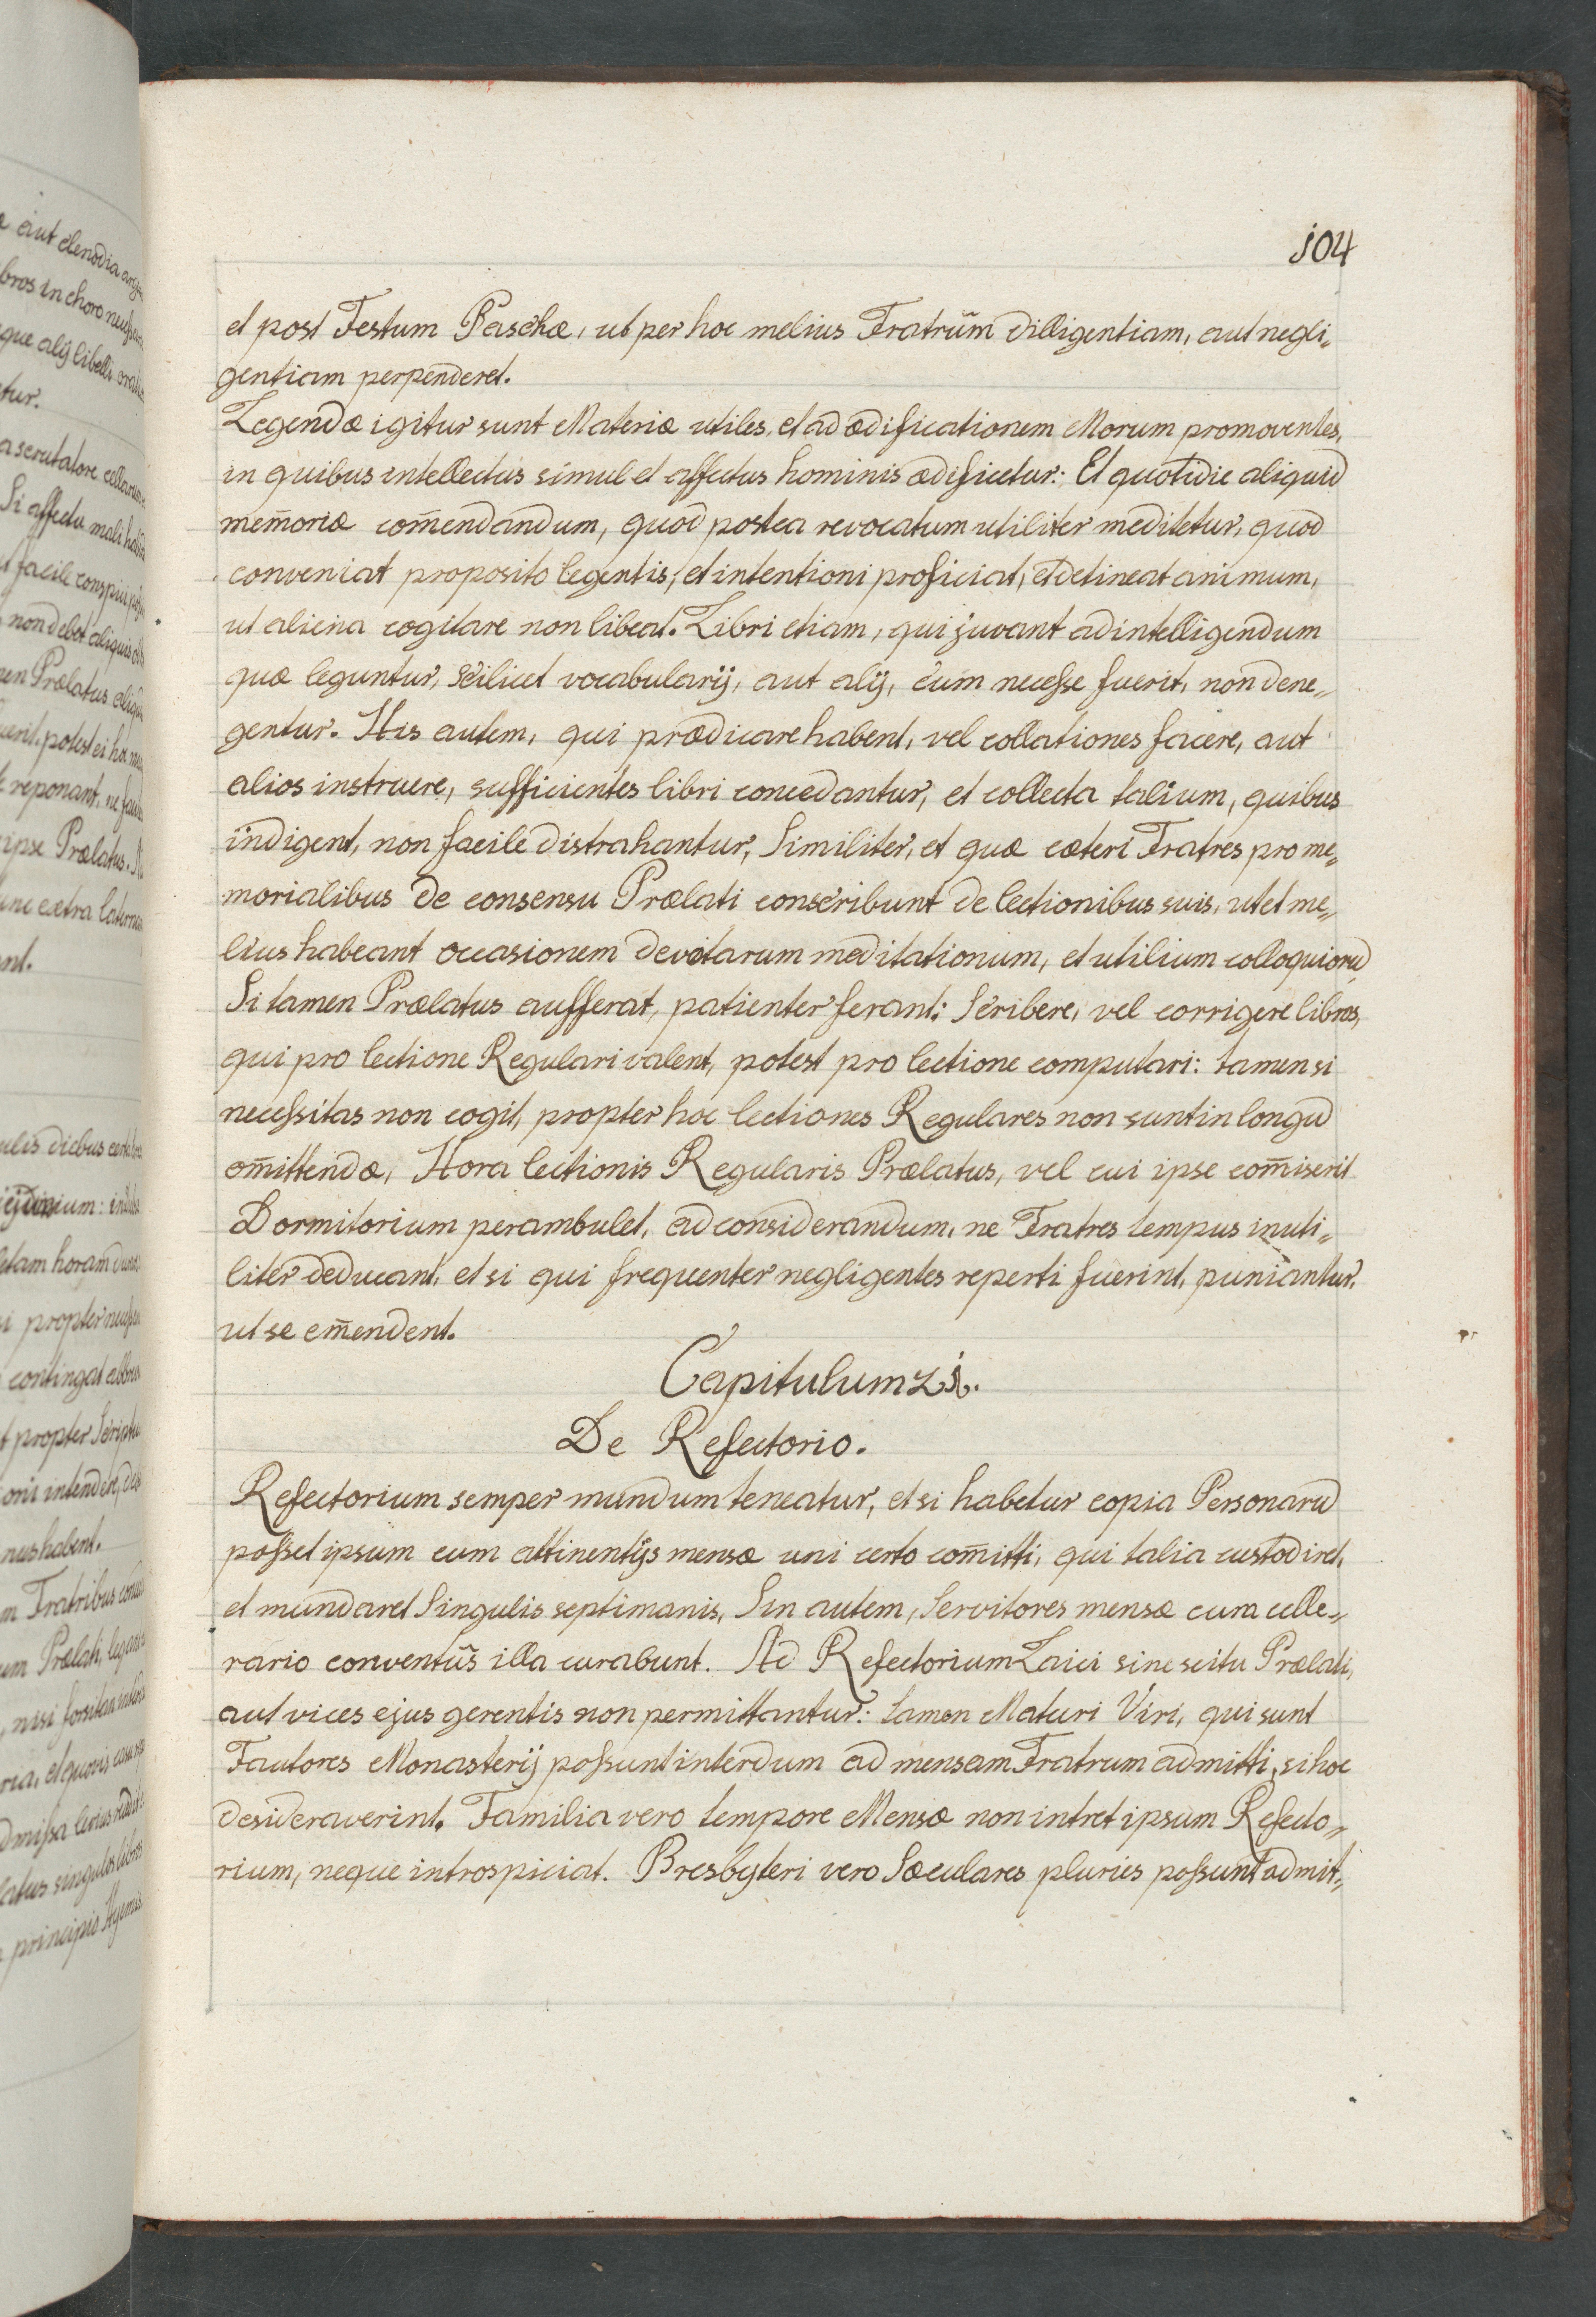 104
et post Festum Paschæ, ut per hoc melius Fratrum dilligentiam, aut negli„
gentiam perpenderet.
Legendæ igitur sunt Materiæ utiles, et ad ædificationem Morum promoventes,
in quibus intellectus simul et affectus hominis ædificetur: Et quotidie aliquid
mem̄oriæ com̄endandum, quod postea revocatum utiliter meditetur, quod
conveniat proposito legentis, et intentioni proficiat, et detineat animum,
ut aliena cogitare non libeat. Libri etiam, qui juvant ad intelligendum
quæ leguntur, scilicet vocabularij, aut alij, cum necesse fuerit, non dene„
gentur. His autem, qui prædicare habent, vel collationes facere, aut
alios instruere, sufficientes libri concedantur, et collecta talium, quibus
indigent, non facile distrahantur, Similiter, et quæ cæteri Fratres pro me„
morialibus de consensu Prælati conscribunt de lectionibus suis, ut et me„
lius habeant occasionem devotarum meditationum, et utilium colloquiorū
Si tamen Prælatus aufferat, patienter ferant: Scribere, vel corrigere libros,
qui pro lectione Regulari valent, potest pro lectione computari: tamen si
necessitas non cogit, propter hoc lectiones Regulares non sunt in longū
om̄ittendæ, Hora lectionis Regularis Prælatus, vel cui ipse com̄iserit
Dormitorium perambulet, ad considerandum, ne Fratres tempus inuti„
liter deducant, et si qui frequenter negligentes reperti fuerint, puniantur,
ut se em̄endent.
Capitulum 21.
De Refectorio.
Refectorium semper mundum teneatur, et si habetur copia Personarū
posset ipsum cum attinentijs mensæ uni certo com̄itti, qui talia custodiret,
et mundaret Singulis septimanis, Sin autem, Servitores mensæ cum celle„
rario conventus illa curabunt. Ad Refectorium Laici sine scitu Prælati,
aut vices ejus gerentis non permittantur: tamen Maturi Viri, qui sunt
Fautores Monasterij possunt interdum ad mensam Fratrum admitti, si hoc
desideraverint. Familia vero tempore Mensæ non intret ipsum Refecto„
rium, neque introspiciat. Presbyteri vero Sæculares pluries possunt admit„